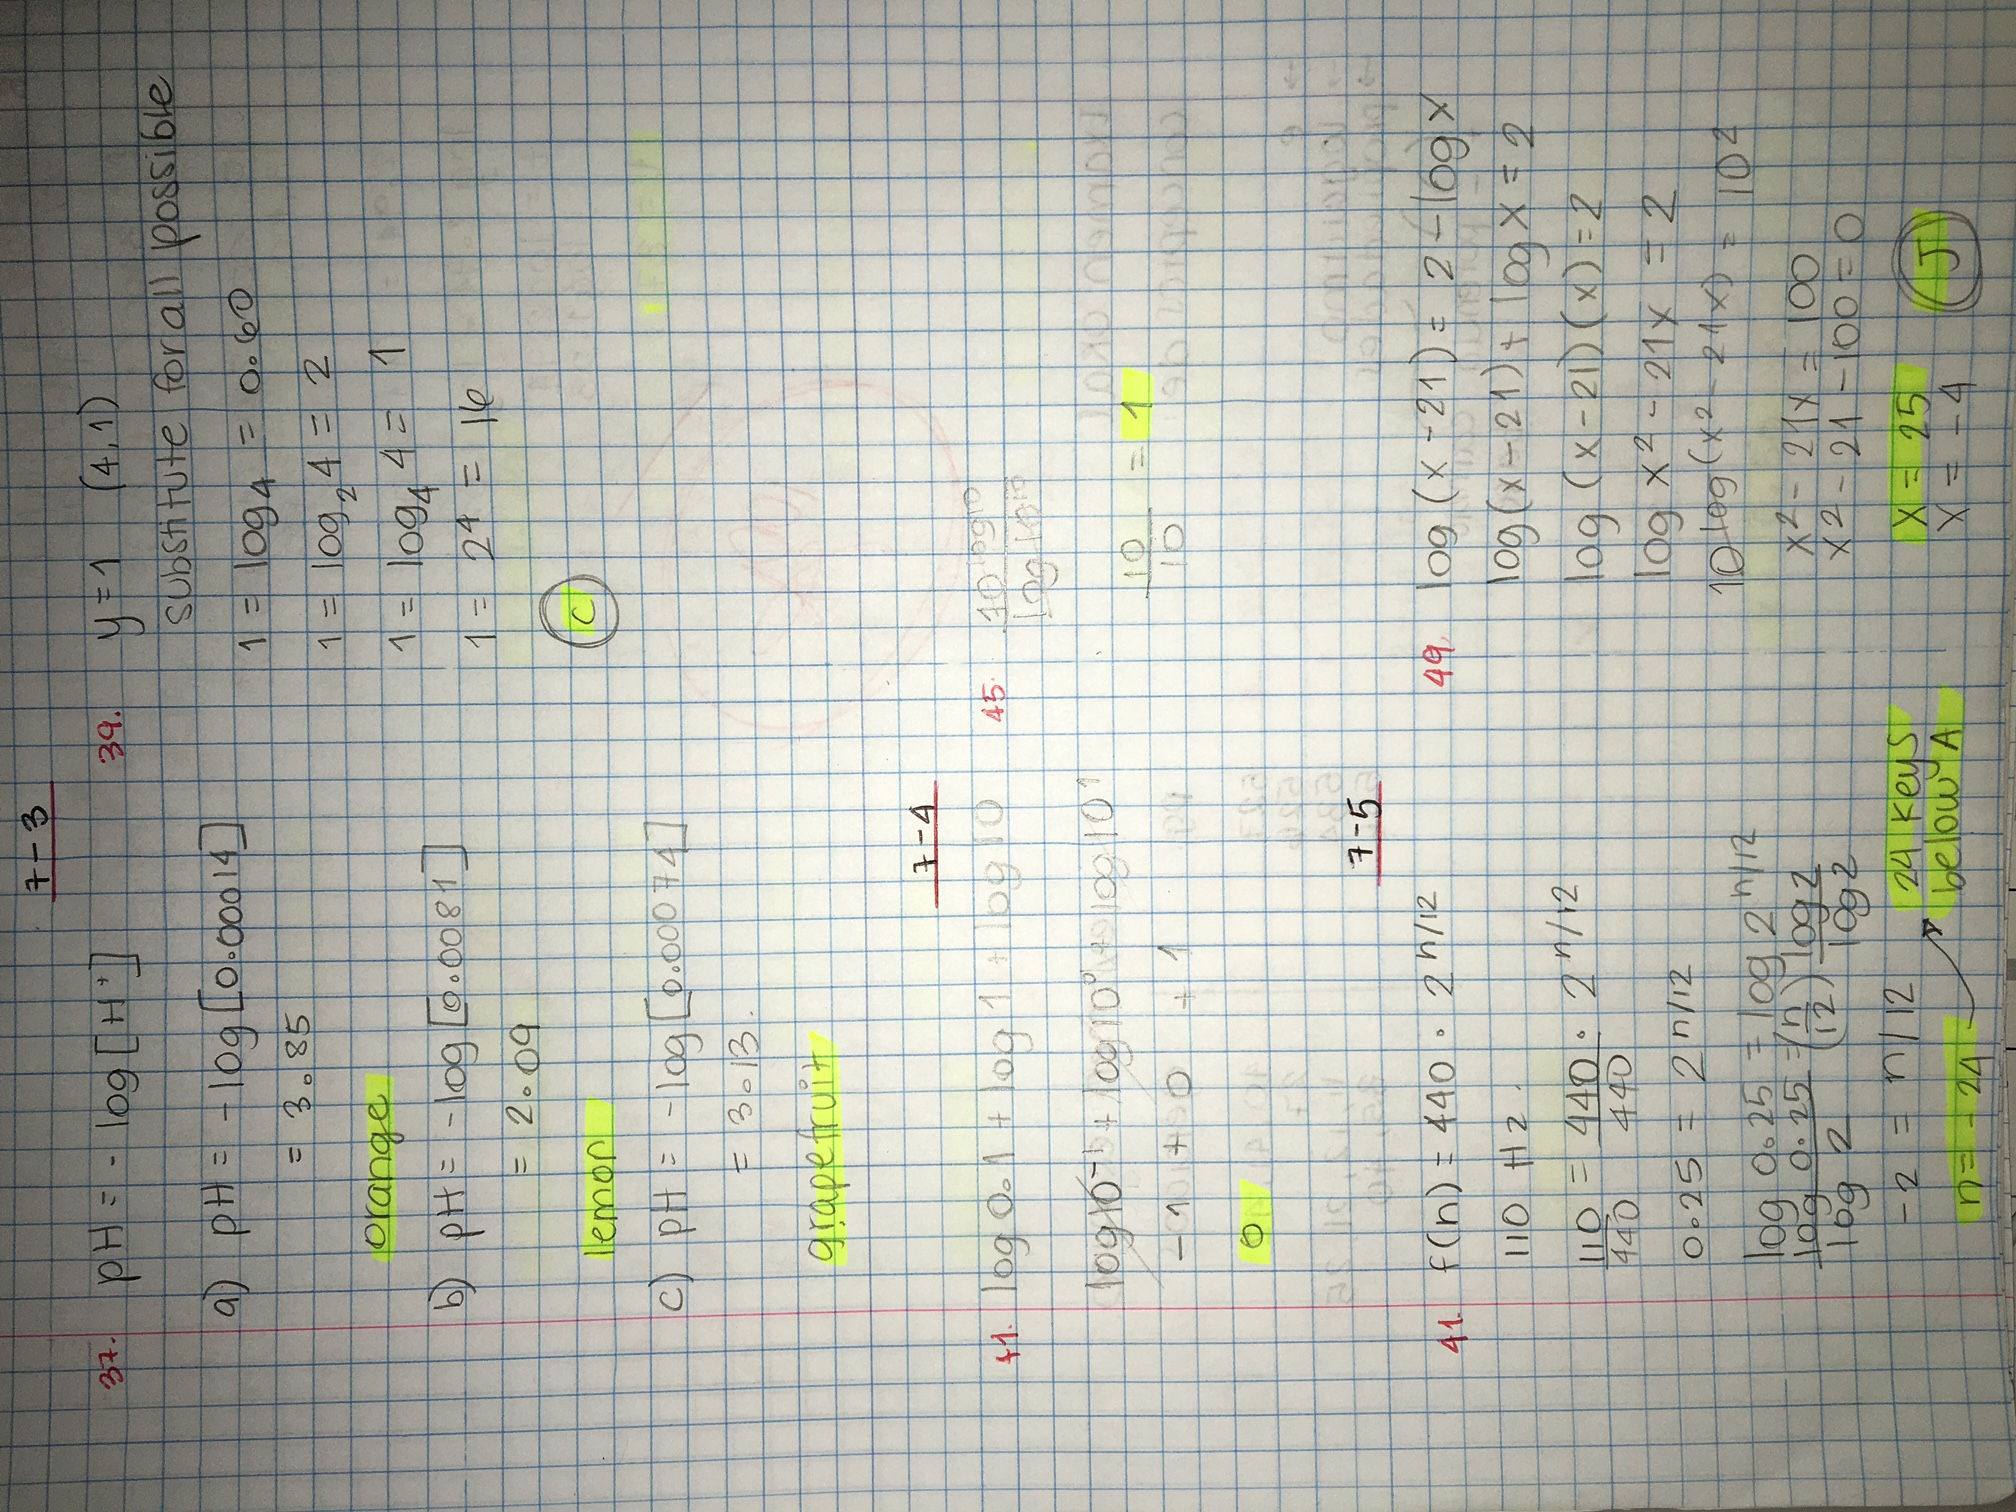 7-3
37. pH = - log[H⁺]
a) pH = - log [0.00014]
= 3.85
orange
b) pH = - log [0.0081]
= 2.09
lemon
c) pH = - log [0.00074]
= 3.13.
grapefruit
39. y = 1 (4,1)
substitute for all possible
1 = log4 = 0.60
1 = log₂4 = 2
1 = log₄4 = 1
1 = 2⁴ = 16
C
7-4
41. log 0.1 + log 1 + log 10
log10⁻¹ + log10⁰ + log10¹
-1 + 0 + 1
0
45.
10/10 = 1
7-5
41. f(n) = 440 · 2^n/12
110 Hz.
110/440 = 440/440 · 2^n/12
0.25 = 2^n/12
log 0.25 = log 2^n/12
log 0.25/log 2 = (n/12) log2/log2
-2 = n/12
n = -24
24 keys
below A
49. log(x-21) = 2 - log x
log(x-21) + log x = 2
log (x-21)(x) = 2
log x² - 21x = 2
10 log(x² - 21x) = 10²
x² - 21x = 100
x² - 21 - 100 = 0
x = 25
x = -4
J